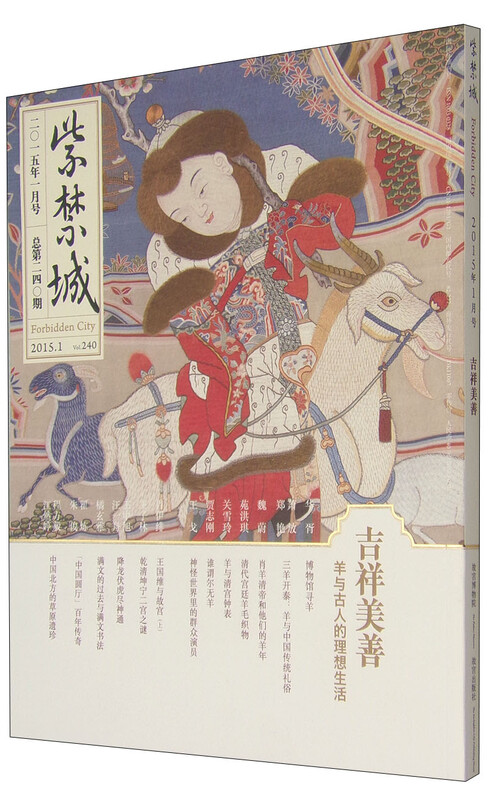 紫禁城
二〇一五年一月号
总第二四〇期
Forbidden City
2015.1 Vol.240
吉祥美善
羊与古人的理想生活
博物馆寻羊
三羊开泰：羊与中国传统礼俗
肖羊清帝和他们的羊年
清代宫廷羊毛织物
羊与清宫钟表
谁谓尔无羊
神怪世界里的群众演员
王国维与故宫（上）
乾清坤宁二宫之谜
降龙伏虎尽神通
满文的过去与满文书法
「中国圆厅」百年传奇
中国北方的草原遗珍
魏蔚
苑洪琪
关雪玲
贾志刚
王戈
紫禁城
Forbidden City
2015年1月号
吉祥美善
故宫博物院
故宫出版社